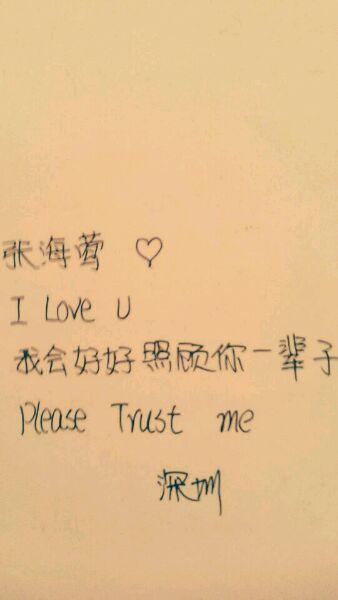 张海莺 ♡
I Love U
我会好好照顾你一辈子
Please Trust me
深圳